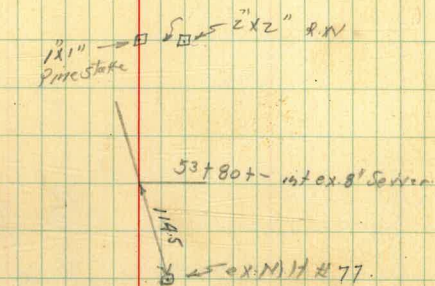 1"x1"
Pine Stake
5
2"x2" R.W
53+80+- int ex. 8" Sewer
119.5
ex. M.H # 77.